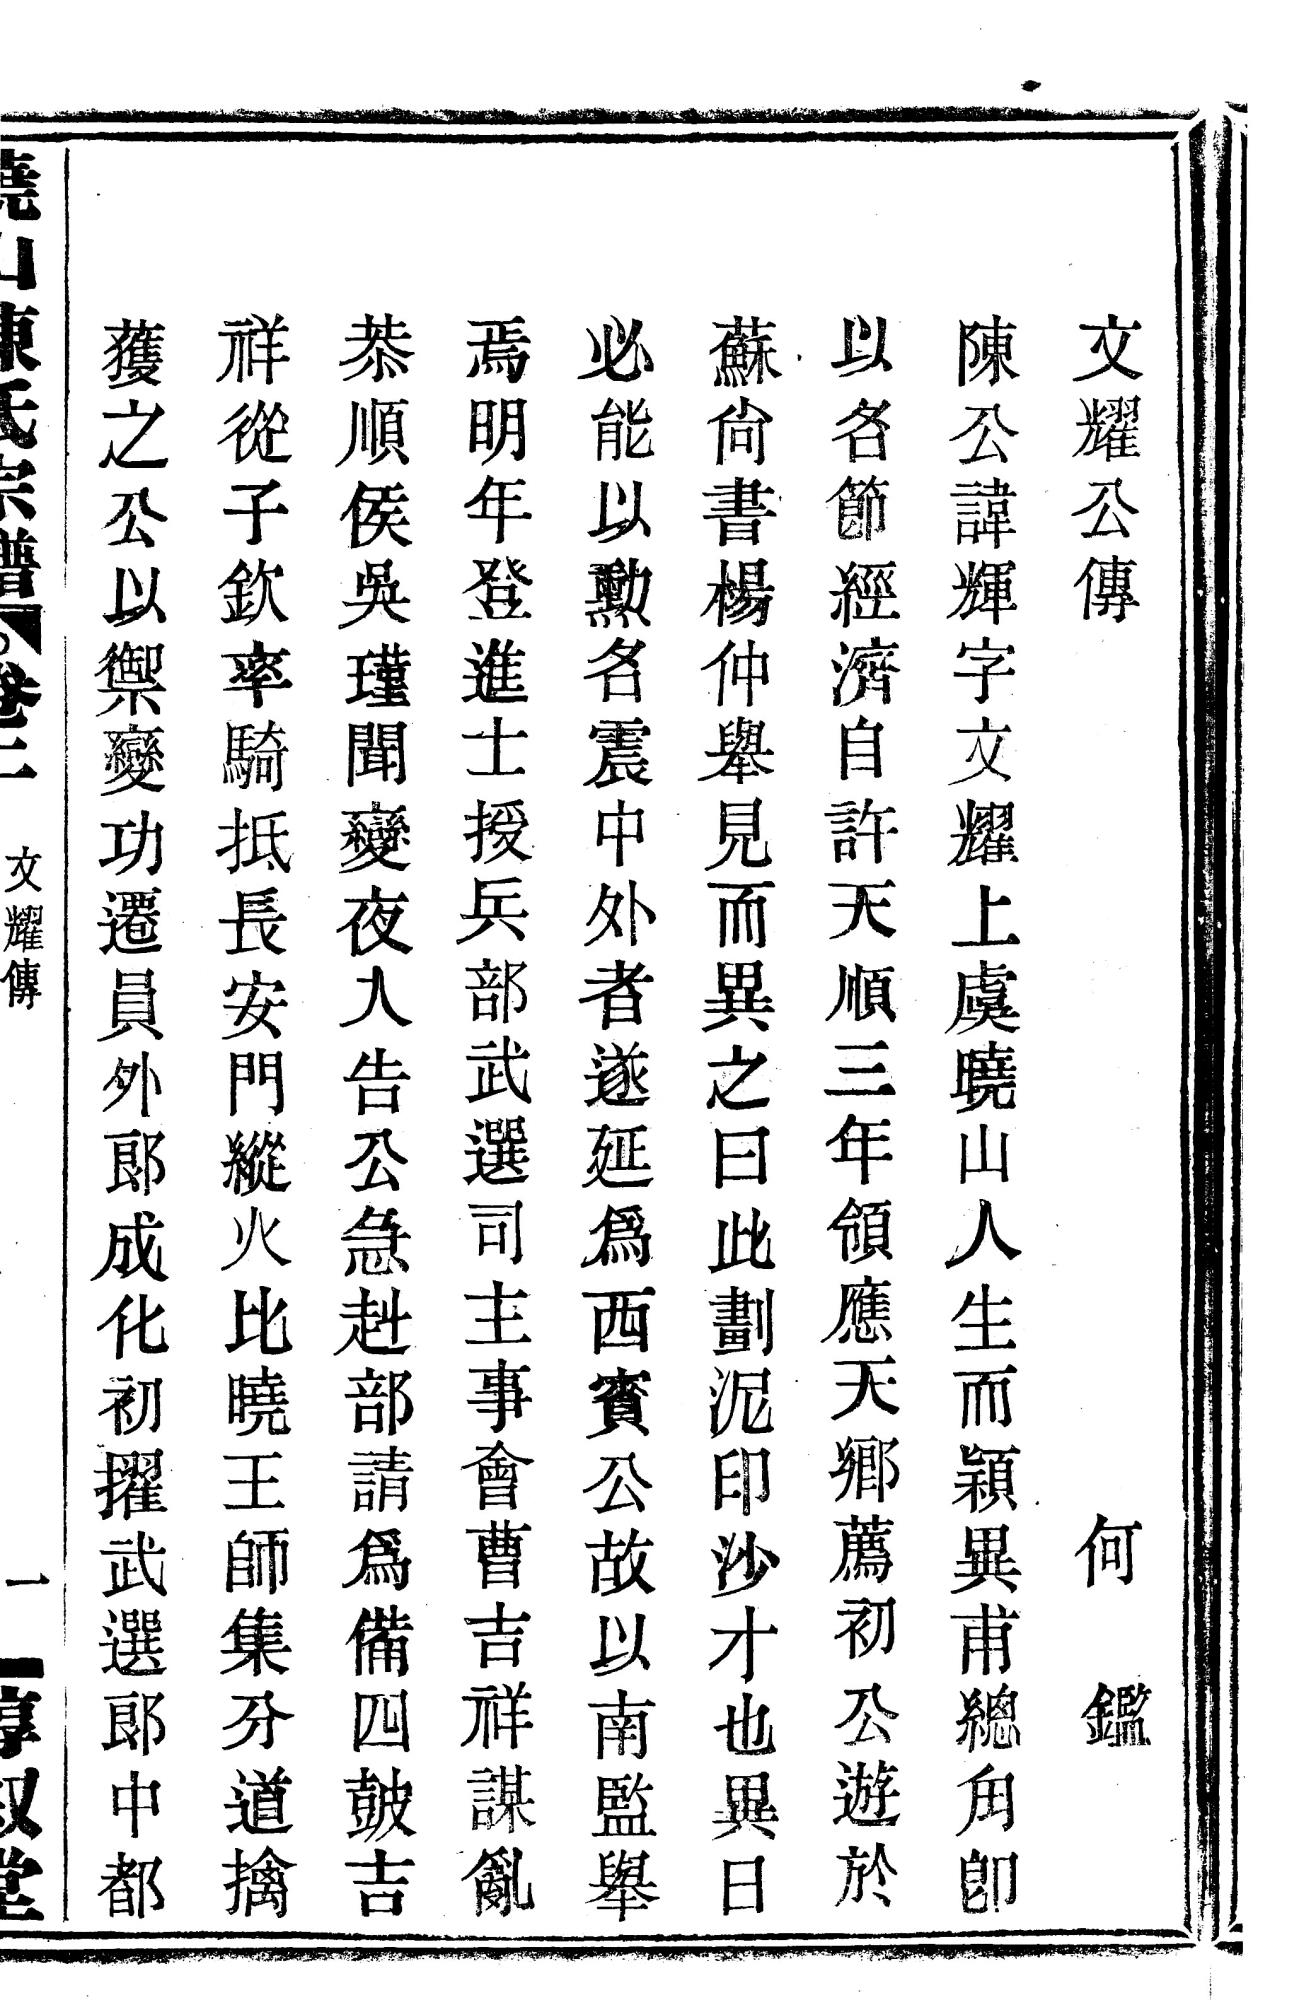 文耀公傳 何鑑
陳公諱輝字文耀上虞曉山人生而穎異甫總角卽
以名節經濟自許天順三年領應天鄉薦初公遊於
蘇尙書楊仲舉見而異之曰此劃泥印沙才也異日
必能以勲名震中外者遂延爲西賓公故以南監舉
焉明年登進士授兵部武選司主事會曹吉祥謀亂
恭順侯吳瑾聞變夜入告公急赴部請爲備四皷吉
祥從子欽率騎抵長安門縱火比曉王師集分道擒
獲之公以禦變功遷員外郎成化初擢武選郎中都
曉山陳氏宗譜 卷二 文耀傳 一 惇叙堂